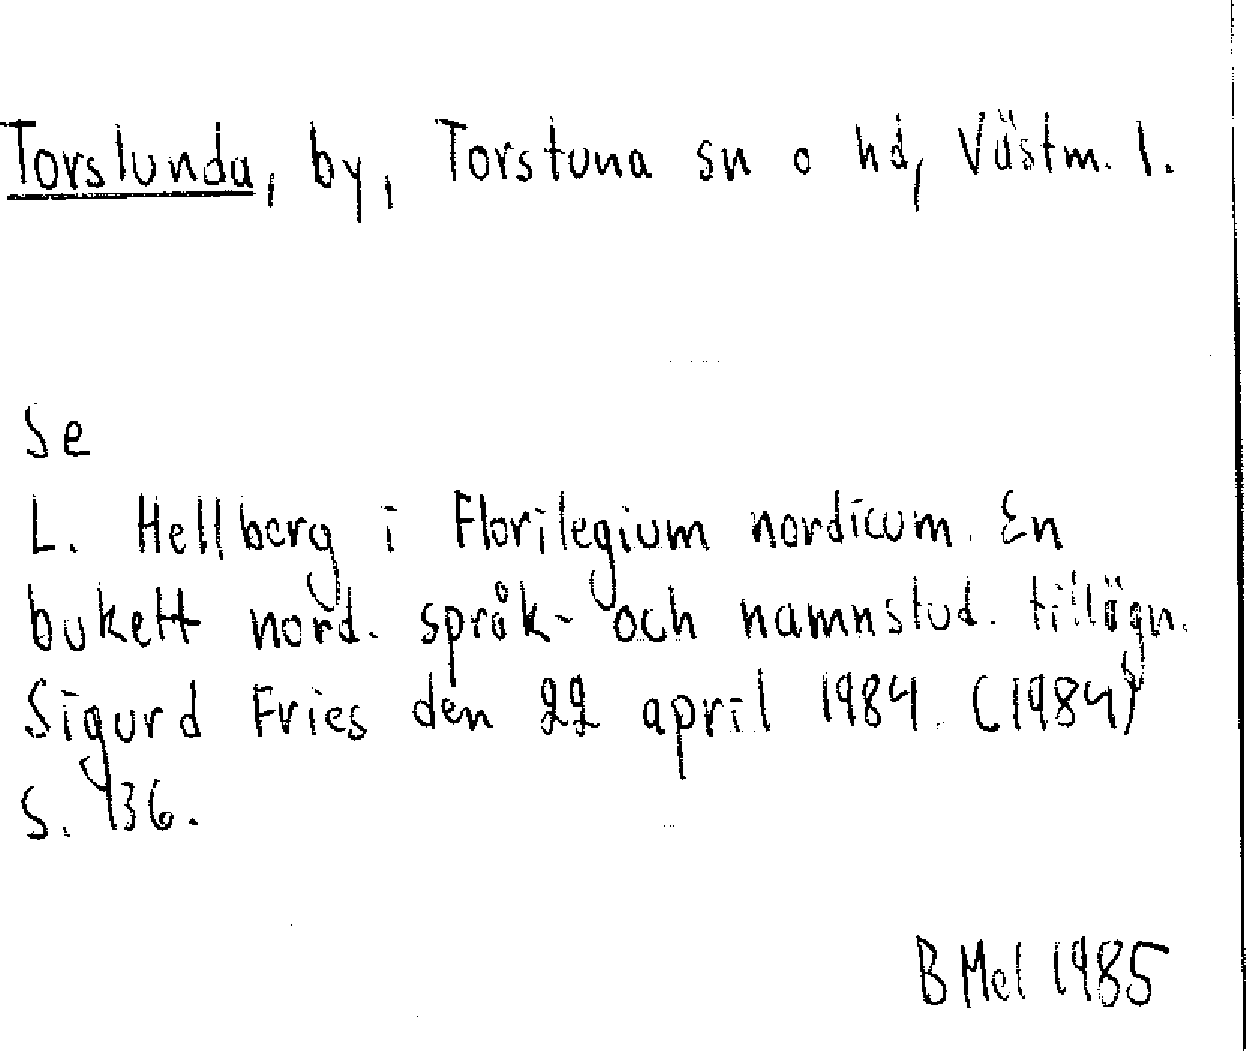 Torslunda, by, Torstuna sn o hd, Västm. l.
Se
L. Hellberg i Florilegium nordicum. En
bukett nord. språk- och namnstud. tillägn.
Sigurd Fries den 22 april 1984. (1984)
S. 136.
B Mel 1985